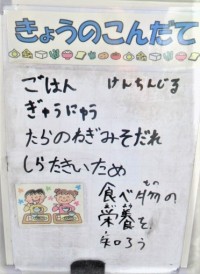 きょうのこんだて
ごはん　けんちんじる
ぎゅうにゅう
たらのねぎみそだれ
しらたきいため
食べ物の
もの
栄養を
えいよう
知ろう